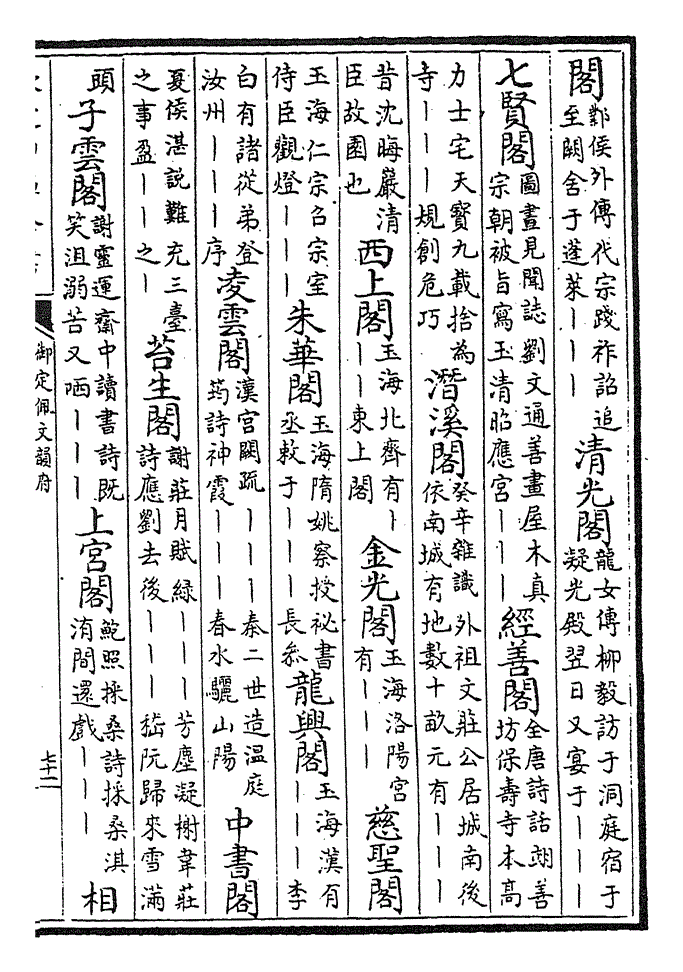 閣鄴侯外傳代宗踐祚詔追至闕舍于蓬萊｜｜｜清光閣龍女傳柳毅訪于洞庭宿于凝光殿翌日又宴于｜｜｜
七賢閣圖畫見聞誌劉文通善畫屋木真宗朝被旨寫玉清昭應宮｜｜｜經善閣全唐詩話翊善坊保壽寺本高
力士宅天寶九載捨為寺｜｜｜規創危巧潛溪閣癸辛雜識外祖文莊公居城南後依南城有地數十畝元有｜｜｜
昔沈晦巖清臣故園也西上閣玉海北齊有｜｜｜東上閣金光閣玉海洛陽宮有｜｜｜慈聖閣
玉海仁宗召宗室侍臣觀燈｜｜｜朱華閣玉海隋姚察授祕書丞敕于｜｜｜長參龍興閣玉海漢有｜｜｜李
白有諸從弟登汝州｜｜｜序凌雲閣漢宮闕疏｜｜｜秦二世造溫庭筠詩神霞｜｜｜春水驪山陽中書閣
夏侯湛說難充三臺之事盈｜｜之｜苔生閣謝莊月賦綠｜｜｜芳塵凝榭韋莊詩應劉去後｜｜｜嵇阮歸來雪滿
頭子雲閣謝靈運齋中讀書詩既笑沮溺苦又哂｜｜｜上宮閣鮑照採桑詩採桑淇洧間還戲｜｜｜相
御定佩文韻府
七十二